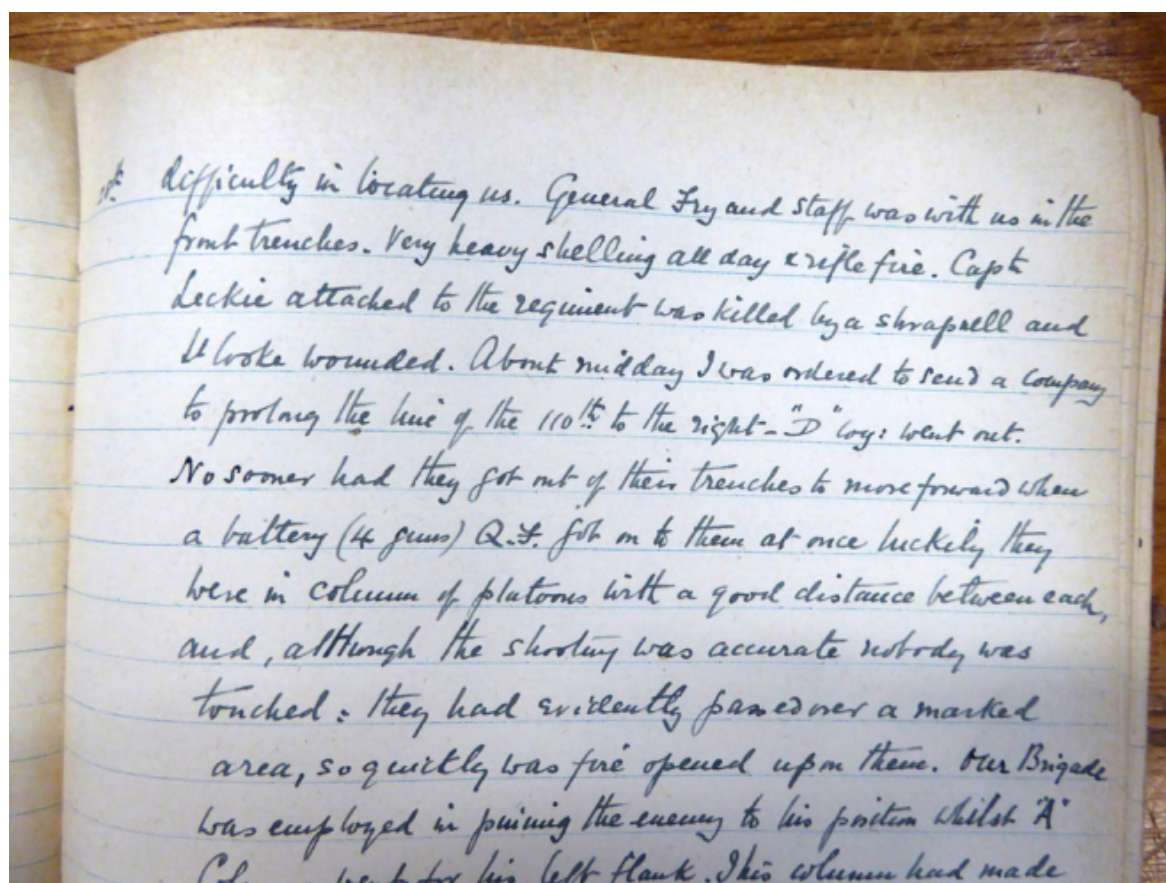 28th difficulty in locating us. General Fry and staff was with us in the
front trenches. Very heavy shelling all day & rifle fire. Capt
Leckie attached to the regiment was killed by a shrapnell and
Lt Cooke wounded. About midday I was ordered to send a company
to prolong the line of the 110th to the right - "D" coy: went out.
No sooner had they got out of their trenches to move forward when
a battery (4 guns) Q.F. got on to them at once luckily they
were in column of platoons with a good distance between each,
and, although the shooting was accurate nobody was
touched: they had evidently passed over a marked
area, so quickly was fire opened upon them. Our Brigade
was employed in pinning the enemy to his position whilst "A"
Column went for his left flank. This column had made